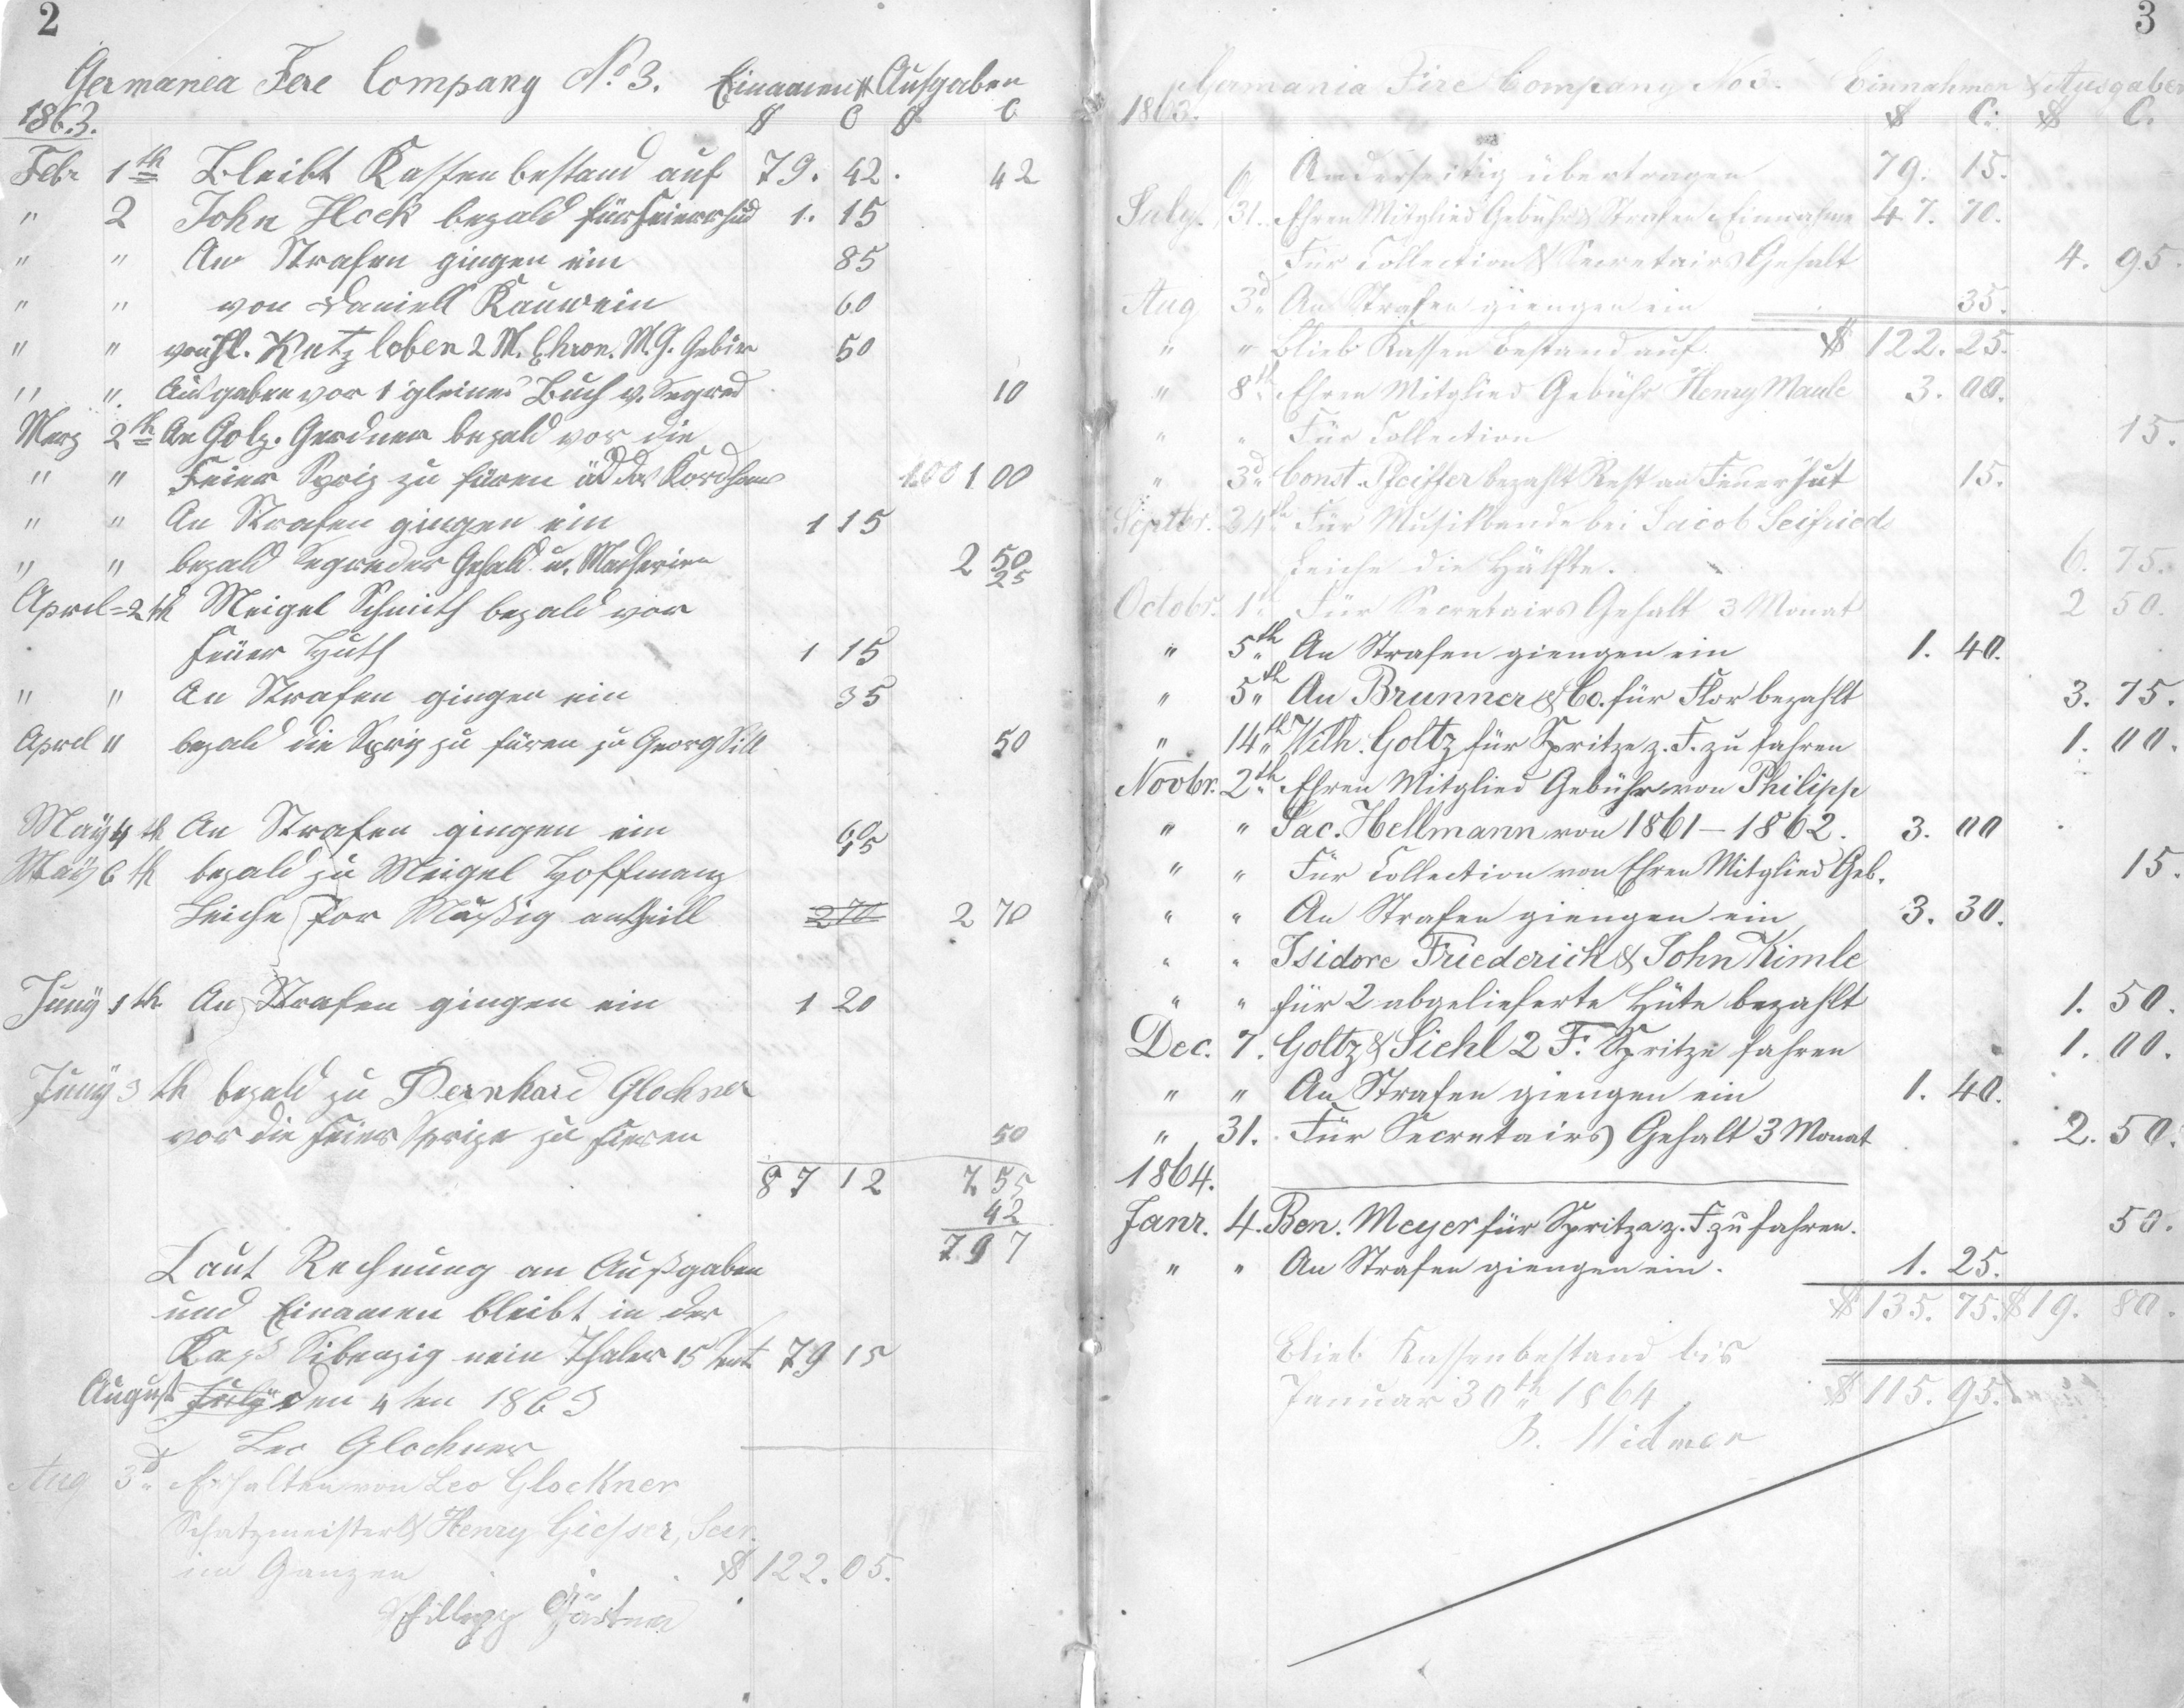 2
Germanea Fere Company No 3. Einamen & Ausgaben
1863. $ C $ C
Febr 1th Bleibt Kassenbestand auf 79. 42. 42
" 2 John Hock bezald für Feierhud 1. 15
" " An Strafen gingen ein 85
" " von Daniell Kauwein 60
" " von 2 M. Ehren. M. G. Gebir 50
" " Ausgaben vor 1 gleines Buch v. Segred 10
Merz 2th An Golz. Gerdner bezald vor die
" " Feier Spriz zu füren 1 00
" " An Strafen gingen ein 1 15
" " bezald Segreder Gehald u. 2 50
25
Aprel 2th Meigel Schmith bezald vor
Feüer Huth 1 15
" " An Strafen gingen ein 35
Aprel " bezald die Spriz zu füren zu Georg Sill 50
May 4th An Strafen gingen ein 60
15
May 6th bezald zu Meigel Hoffmanz
Leiche for Mußig antheill 270 2 70
Juny 1th An Strafen gingen ein 1 20
Juny 3th bezald zu Bernhard Glockner
vor die Feier Sprize zu fieren 50
87 12 7 55
42
7 97
Laut Rechnung an Außgaben
und Einamen bleibt in der
Kaß Sibenzig nein Thaler 15 Cent 79 15
August July den 4ten 1863
Leo Glockner
Aug 3d Erhalten von Leo Glockner
Schatzmeister & Henry Giesser, Secr.
im Ganzen $ 122. 05.
Phillipp Gärtner
3
Germania Fire Company No 3. Einnahmen & Ausgaben
1863. $ C. $ C.
Anderseitig übertragen 79. 15.
July. 31. Ehren Mitglied Gebühr & Strafen Einnahme 47. 70.
Für Collection & Secretairs Gehalt 4. 95.
Aug 3d An Strafen giengen ein 35.
" " Blieb Kassen bestand auf $ 122. 25.
" 8th Ehren Mitglied Gebühr Henry Maule 3. 00.
" " Für Collection 15.
" 3d Const. Pfeiffer bezahlt Rest an Feuerhut 15.
Septbr. 24th Für Musikbande bei Jacob Seifried
Leiche die Hälfte. 6. 75.
Octobr. 1. Für Secretairs Gehalt 3 Monat 2 50.
" 5th An Strafen giengen ein 1. 40.
" 5th An Brunner & Co. für Flor bezahlt 3. 75.
" 14th Wilh. Goltz für Spritze z. F. zu fahren 1. 00.
Novbr. 2th Ehren Mitglied Gebühr von Philipp
" " Jac. Hellmann von 1861–1862. 3. 00
" " Für Collection von Ehren Mitglied Geb. 15.
" " An Strafen giengen ein 3. 30.
" " Isidore Friederich & John Kimle
" " für 2 abgelieferte Hüte bezahlt 1. 50.
Dec. 7. Goltz & Siehl 2 F. Spritze fahren 1. 00.
" " An Strafen giengen ein 1. 40.
" 31. Für Secretairs Gehalt 3 Monat 2. 50.
1864.
Janr. 4. Ben. Meyer für Spritze z. F. zu fahren. 50.
" " An Strafen giengen ein. 1. 25.
$ 135. 75. $ 19. 80.
Blieb Kassenbestand bis
Januar 30th 1864 $ 115. 95.
B. Widmer